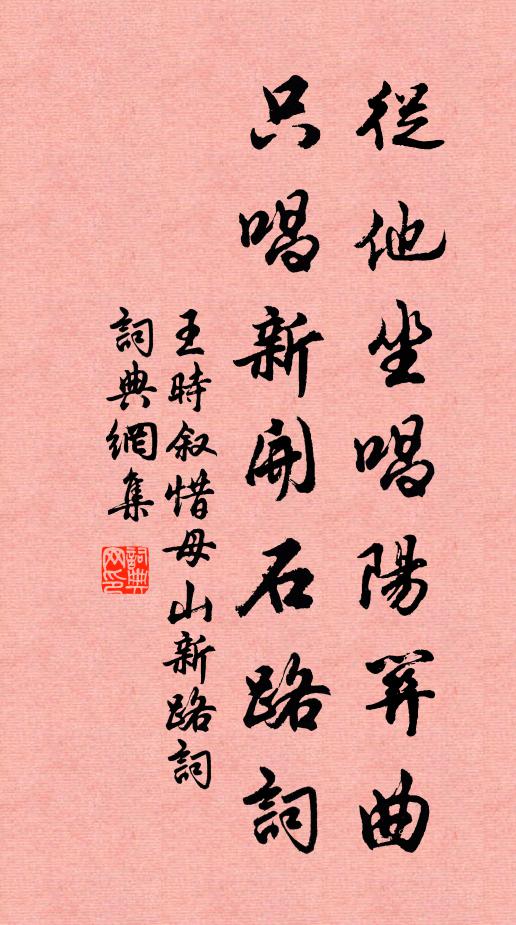 從他坐唱陽関曲
只唱新開石路詞
王時叙惜母山新路詞
詞典網集
詞典网印